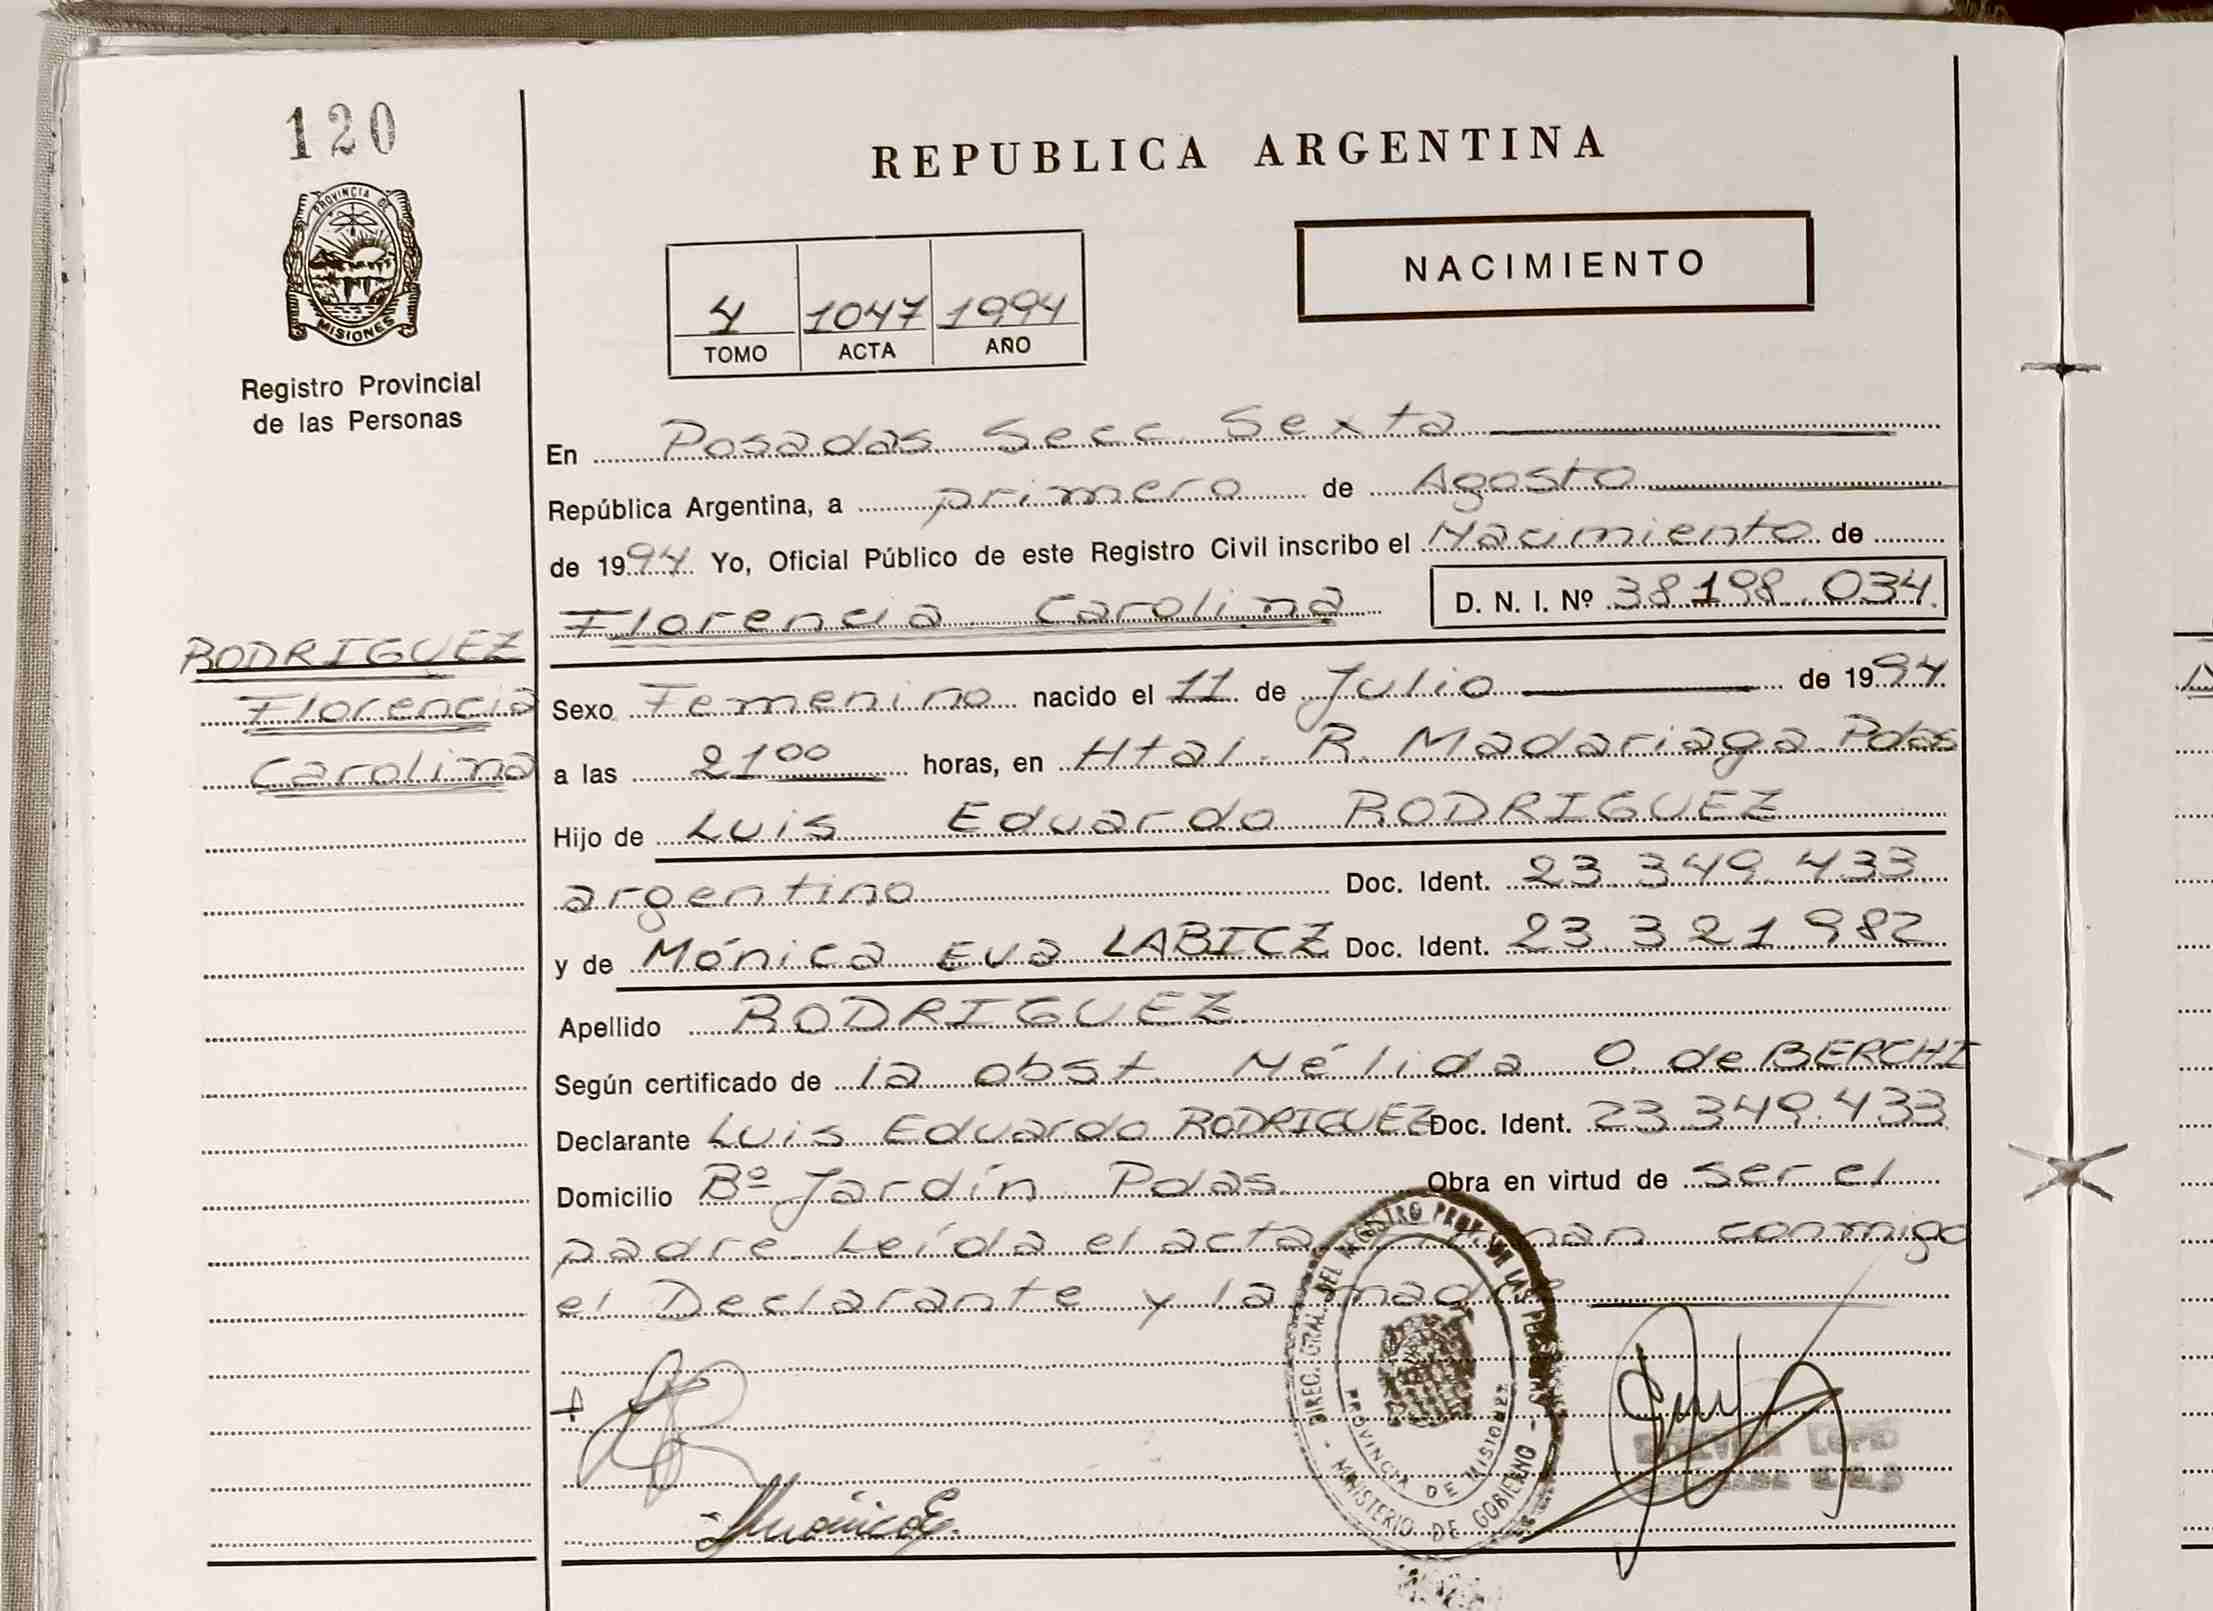 120
PROVINCIA DE
MISIONES
Registro Provincial
de las Personas
REPUBLICA ARGENTINA
NACIMIENTO
4 1047 1994
TOMO ACTA AÑO
En Posadas Secc. Sexta
República Argentina, a primero de Agosto
de 1994 Yo, Oficial Público de este Registro Civil inscribo el Nacimiento de
Florencia Carolina D. N. I. Nº 38 198 034.
RODRIGUEZ
Florencia
Carolina
Sexo Femenino nacido el 11 de Julio de 1994
a las 21 00 horas, en Htal. R. Madariaga Pdas
Hijo de Luis Eduardo RODRIGUEZ
argentino Doc. Ident. 23 349 433
y de Mónica Eva LABICZ Doc. Ident. 23 321 982
Apellido RODRIGUEZ
Según certificado de la obst. Nélida O. de BERCHI
Declarante Luis Eduardo RODRIGUEZ Doc. Ident. 23 349.433
Domicilio Bº Jardín Pdas Obra en virtud de ser el
padre Leída el acta firman conmigo
el Declarante y la madre
DIREC. GRAL. DEL REGISTRO PROV. DE LAS PERSONAS
PROVINCIA DE MISIONES
MINISTERIO DE GOBIERNO
Mónica E.